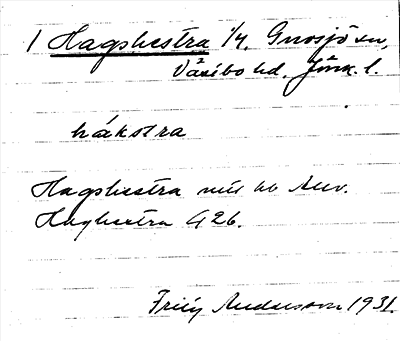 1 Hagshestra 1/4, Gnosjö sn,
Västbo hd. Jönk. l.
håkstra
Hagshestra
Haghestra G 26.
Andersson 1931.